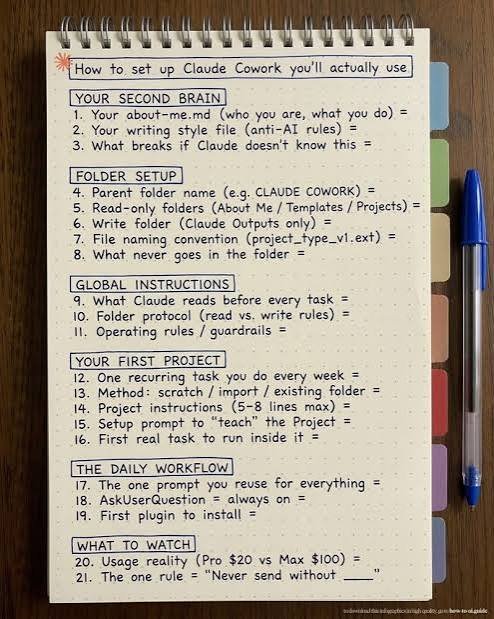 How to set up Claude Cowork you'll actually use
YOUR SECOND BRAIN
1. Your about-me.md (who you are, what you do) =
2. Your writing style file (anti-AI rules) =
3. What breaks if Claude doesn't know this =
FOLDER SETUP
4. Parent folder name (e.g. CLAUDE COWORK) =
5. Read-only folders (About Me / Templates / Projects) =
6. Write folder (Claude Outputs only) =
7. File naming convention (project_type_v1.ext) =
8. What never goes in the folder =
GLOBAL INSTRUCTIONS
9. What Claude reads before every task =
10. Folder protocol (read vs. write rules) =
11. Operating rules / guardrails =
YOUR FIRST PROJECT
12. One recurring task you do every week =
13. Method: scratch / import / existing folder =
14. Project instructions (5-8 lines max) =
15. Setup prompt to "teach" the Project =
16. First real task to run inside it =
THE DAILY WORKFLOW
17. The one prompt you reuse for everything =
18. AskUserQuestion = always on =
19. First plugin to install =
WHAT TO WATCH
20. Usage reality (Pro $20 vs Max $100) =
21. The one rule = "Never send without ____"
to download this infographics in high quality, go to how-to-ai.guide